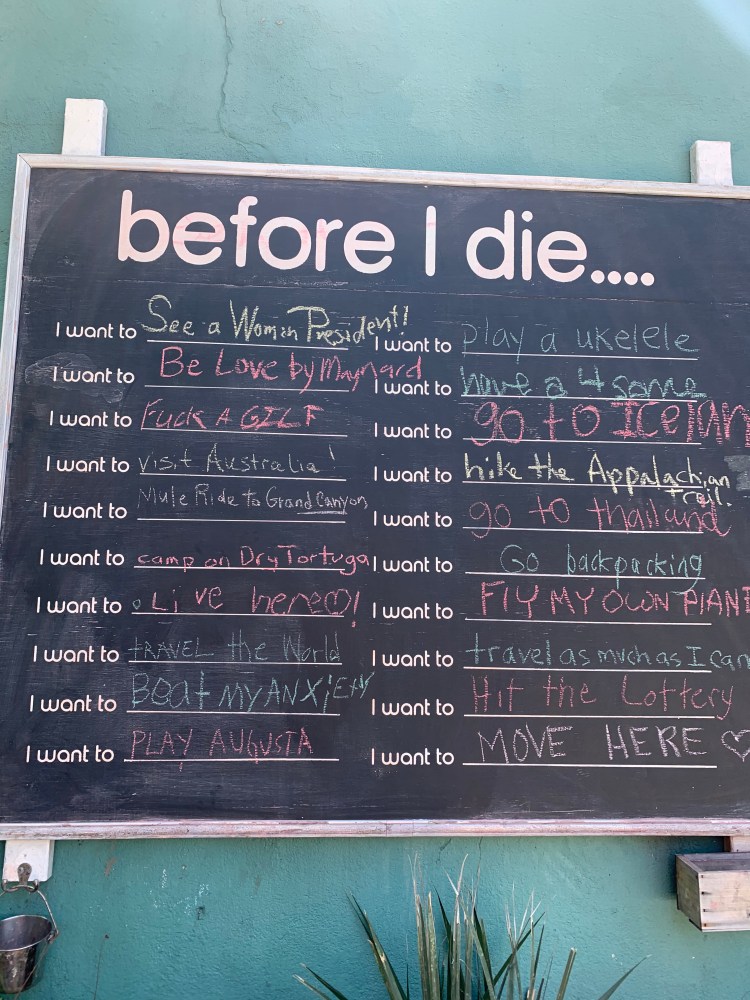 before I die....
I want to See a Woman President!
I want to Be Love by Maynard
I want to Fuck A GILF
I want to Visit Australia!
I want to Mule Ride to Grand Canyon
I want to camp on Dry Tortuga
I want to Live here!
I want to TRAVEL the World
I want to Beat MY ANXiEtY
I want to PLAY AUGUSTA
I want to play a ukelele
I want to have a 4 some
I want to go to ICelan
I want to hike the Appalachian
Trail.
I want to go to thailand
I want to Go backpacking
I want to FlY MY OWN PlANE
I want to travel as much as I can
I want to Hit the Lottery
I want to MOVE HERE